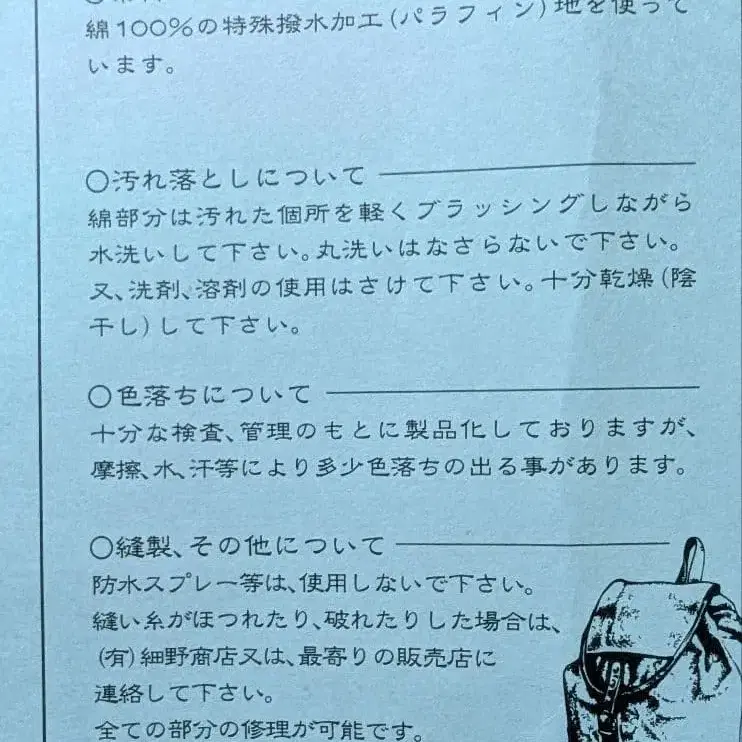 綿100%の特殊撥水加工(パラフィン)地を使って
います。
○汚れ落としについて
綿部分は汚れた個所を軽くブラッシングしながら
水洗いして下さい。丸洗いはなさらないで下さい。
又、洗剤、溶剤の使用はさけて下さい。十分乾燥(陰
干し)して下さい。
○色落ちについて
十分な検査、管理のもとに製品化しておりますが、
摩擦、水、汗等により多少色落ちの出る事があります。
○縫製、その他について
防水スプレー等は、使用しないで下さい。
縫い糸がほつれたり、破れたりした場合は、
(有)細野商店又は、最寄りの販売店に
連絡して下さい。
全ての部分の修理が可能です。